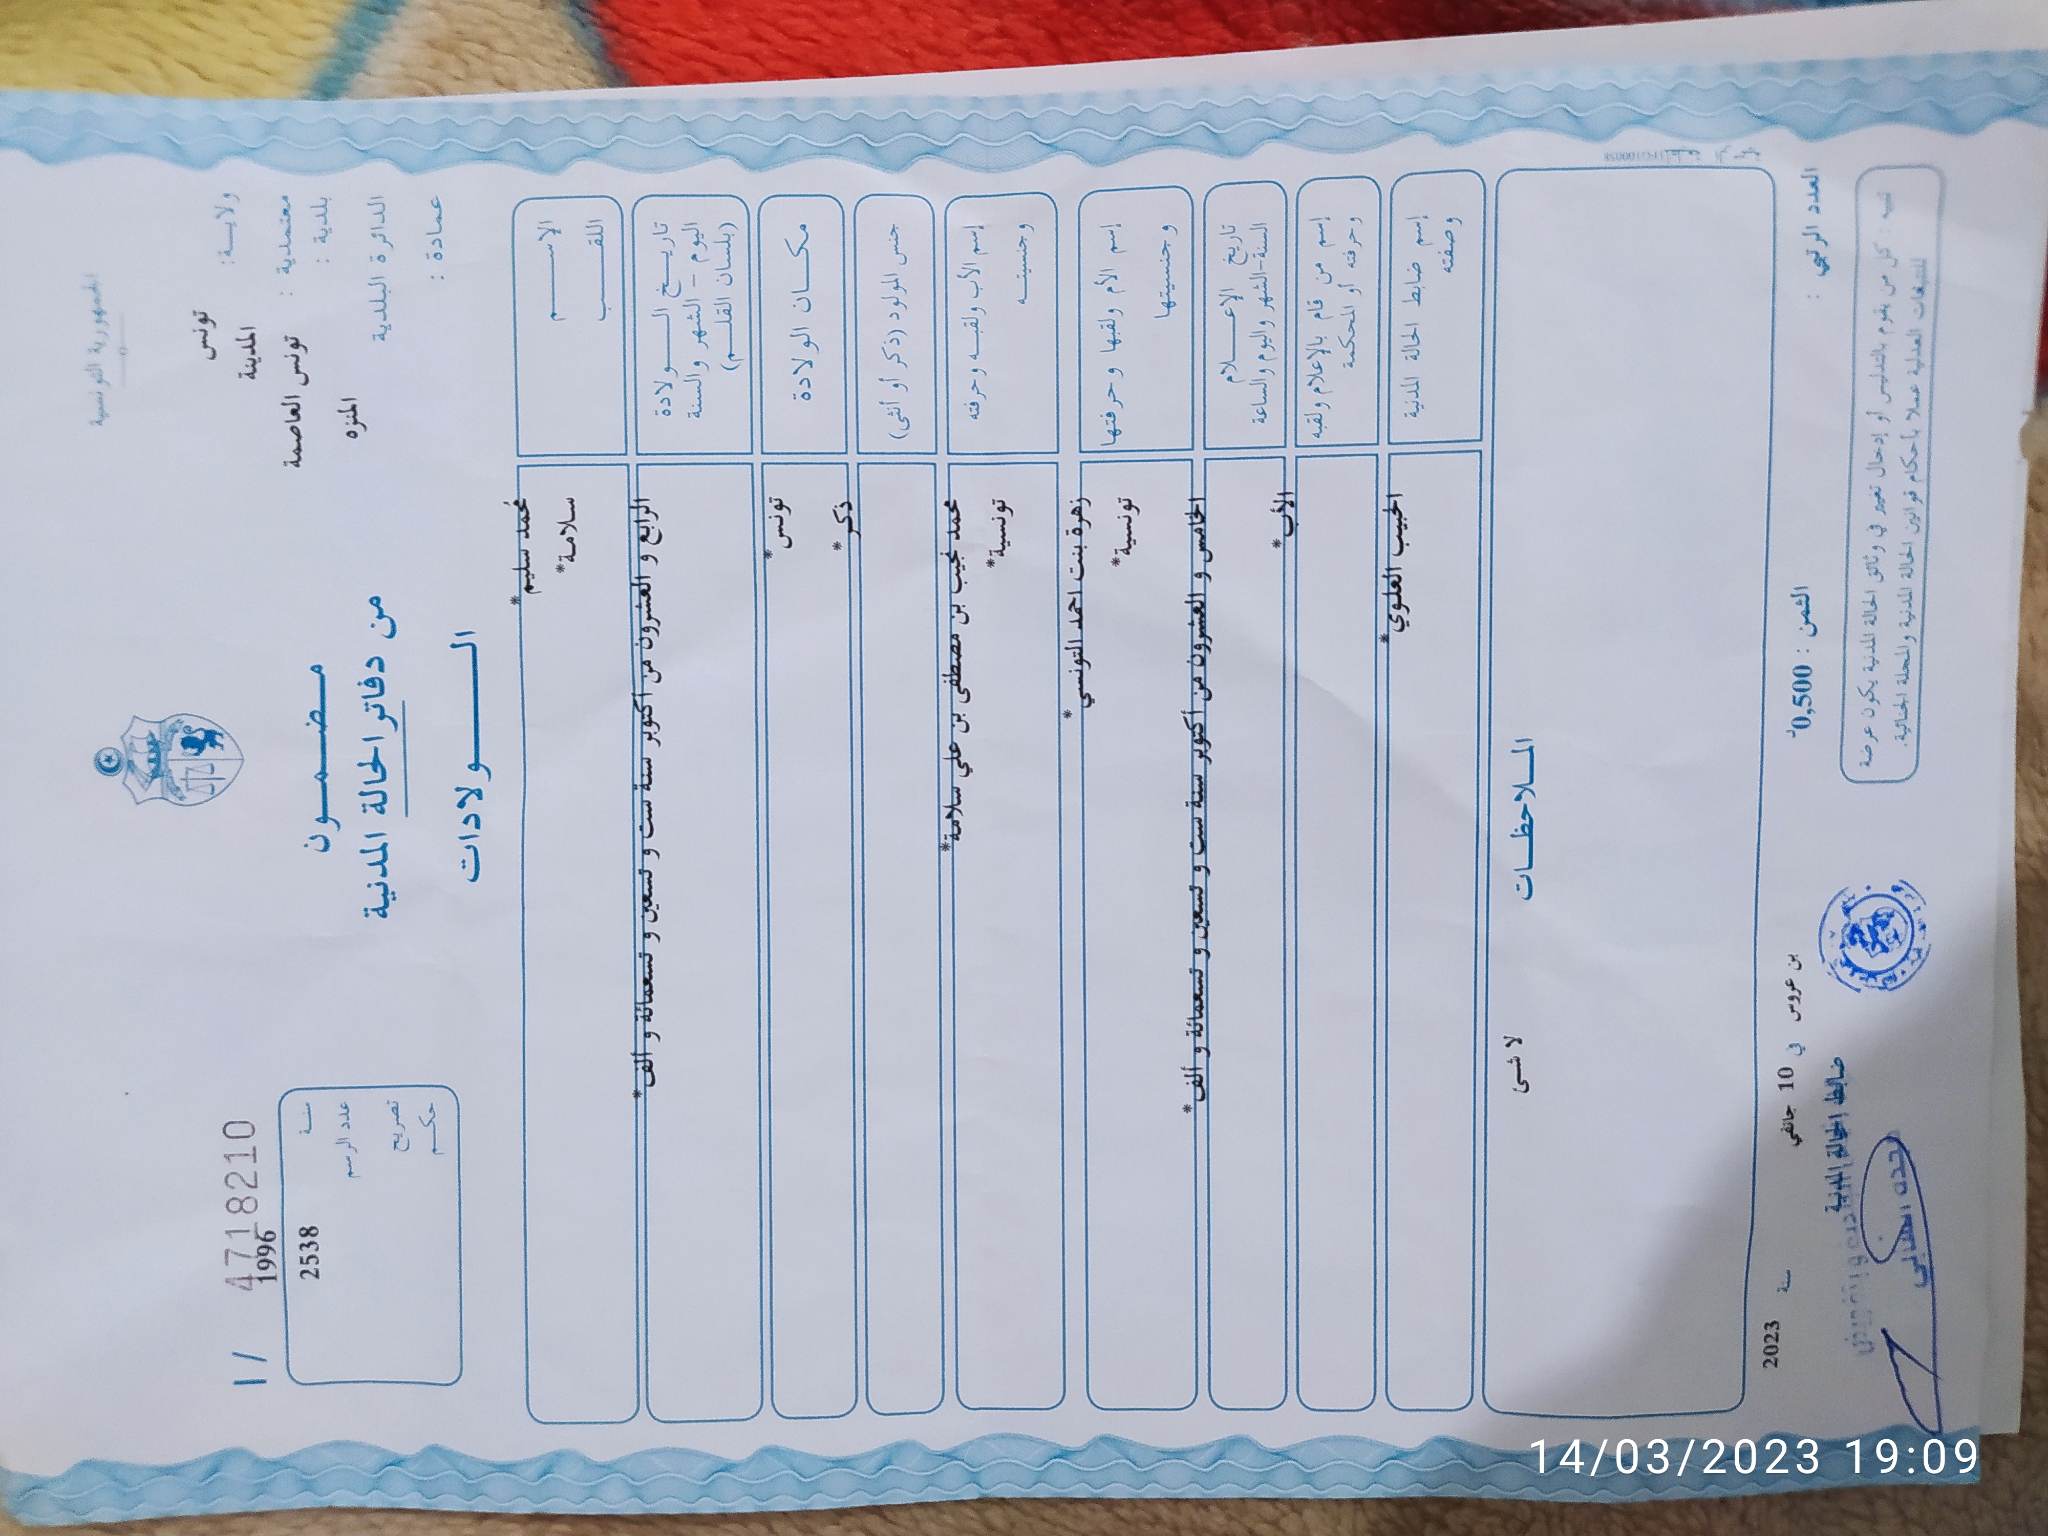 الجمهورية التونسية
ولايـــة: تونس
معتمدية : المدينة
بلدية : تونس العاصمة
الدائرة البلدية المنزه
عمادة :
مـضـمـــون
من دفاتر الحالة المدنية
الـــــولادات
1/ 4718210
سنــة 1996
عدد الرسم 2538
تصريح
حكــم
الاســـــم محمد سليم*
اللقـــــب سلامة*
تاريـــخ الـــــولادة
اليوم - الشهر والسنة
(بلسان القلـــم)
الرابع و العشرون من أكتوبر سنة ست و تسعين و تسعمائة و ألف*
مكـــان الولادة تونس*
جنس المولود (ذكر أو أنثى) ذكر*
إسم الأب ولقبـه وحرفته محمد نجيب بن مصطفى بن علي سلامة*
وجنسيتــه تونسية*
إسم الأم ولقبها وحرفتها زهرة بنت احمد التونسي*
وجنسيتها تونسية*
تاريخ الإعـــلام
السنة-الشهر واليوم والساعة
الخامس و العشرون من أكتوبر سنة ست و تسعين و تسعمائة و ألف*
إسم من قام بالإعلام ولقبه
وحرفته أو المحكمة
الأب*
إسم ضابط الحالة المدنية
وصفته
الحبيب العلوي*
المـــلاحظـــات
لا شئ
العدد الرتبي :
الثمن : 0,500د
بن عروس في 10 جانفي سنة 2023
ضابط الحالة المدنية
تنبيه : كل من يقوم بالتدليس أو إدخال تغيير في وثائق الحالة المدنية يكون عرضة
للتتبعات العدلية عملا بأحكام قوانين الحالة المدنية والمجلة الجنائية.
14/03/2023 19:09